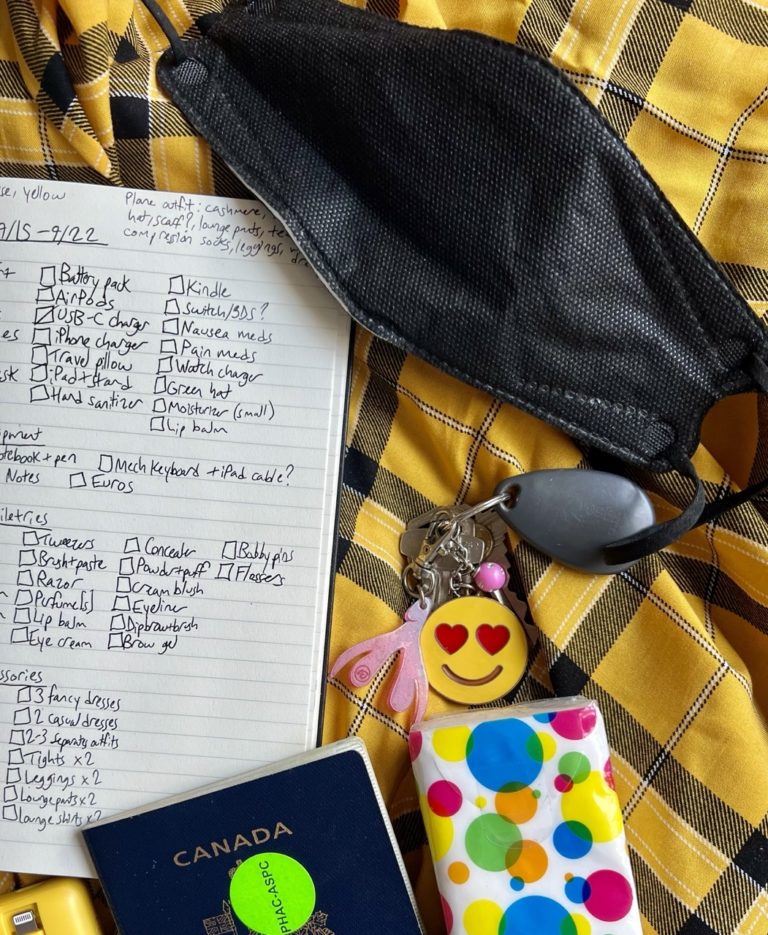 se, yellow
Plane outfit: cashmere,
hat/scarf?, lounge pants,
compression socks, leggings,
9/15-9/22
Battery pack
AirPods
USB-C charger
iPhone charger
Travel pillow
iPad + stand
Hand sanitizer
Kindle
Switch/3DS?
Nausea meds
Pain meds
Watch charger
Green hat
Moisturizer (small)
Lip balm
pment
otebook + pen
Mech keyboard + iPad cable?
Notes
Euros
iletries
Tweezers
Brush+paste
Razor
Perfume(s)
Lip balm
Eye cream
Concealer
Powder+puff
Cream blush
Eyeliner
Dipbrow+brush
Brow gel
Bobby pins
Flossers
ssories
3 fancy dresses
2 casual dresses
2-3 separates outfits
Tights x2
Leggings x2
Lounge pants x2
lounge shirts x2
CANADA
PHAC-ASPC